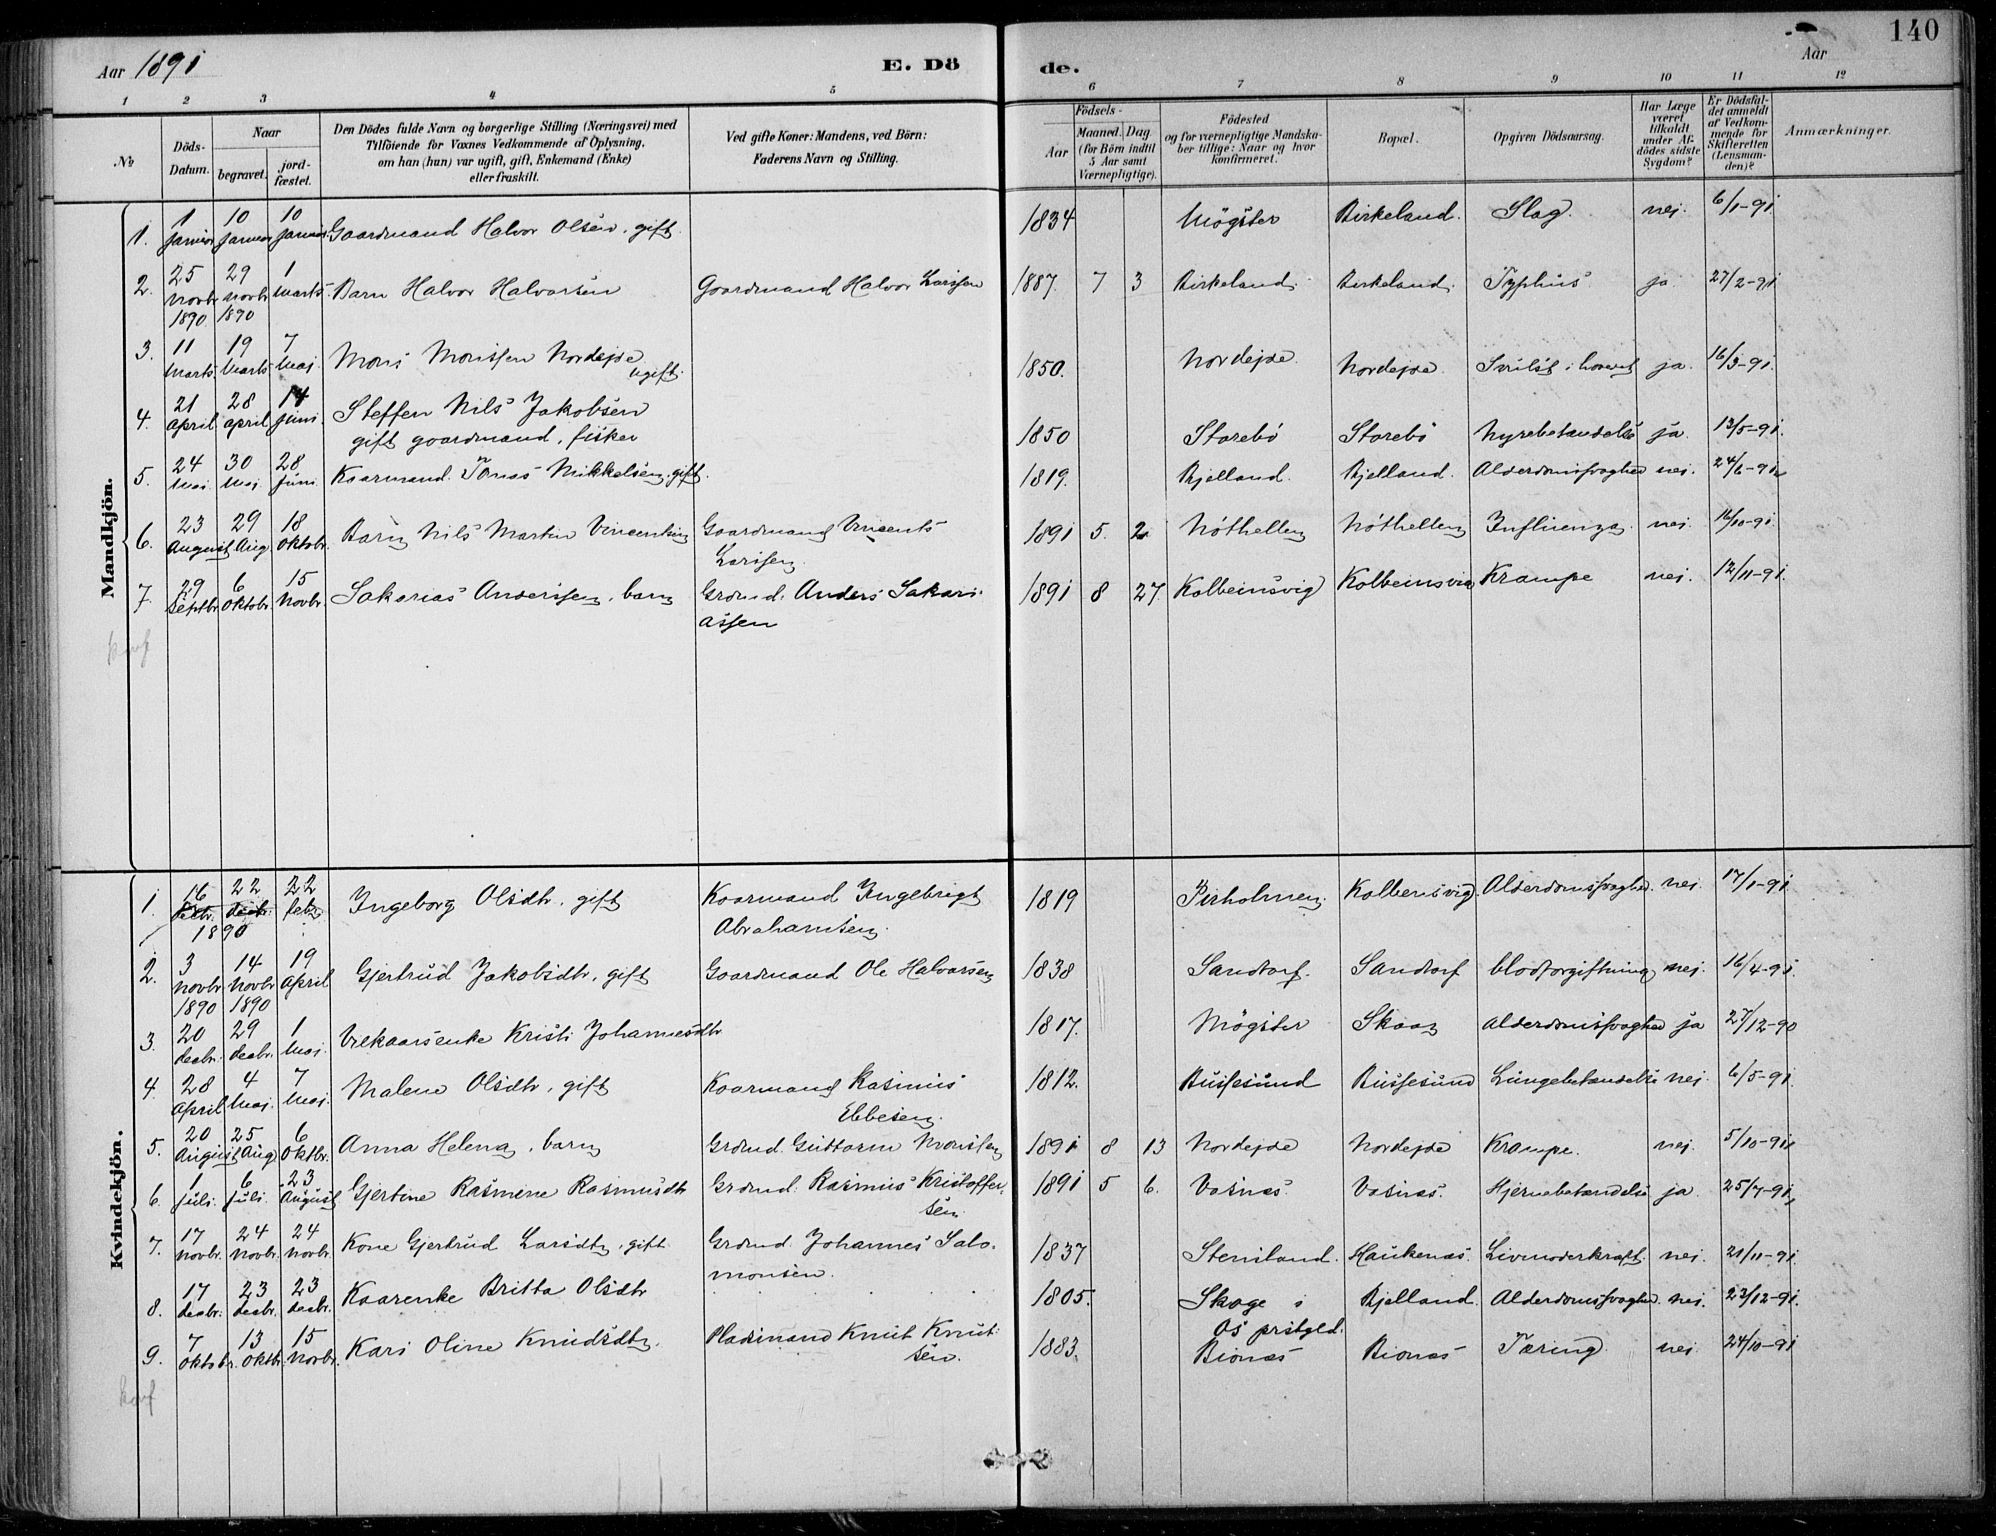 Aar 1891 E. Dö de. Aar 140
1 2 3 4 5 6 7 8 9 10 11 12
No Döds-Datum. Naar begravet. jordfæstet. Den Dödes fulde Navn og borgerlige Stilling (Næringsvei) med Tilföiende for Voxnes Vedkommende af Oplysning, om han (hun) var ugift, gift, Enkemand (Enke) eller fraskilt. Ved gifte Koner: Mandens, ved Börn: Faderens Navn og Stilling. Födsels- Aar Maaned. Dag (for Börn indtil 5 Aar samt Værnepligtige). Födested og for værnepligtige Mandskaber tillige: Naar og hvor konfirmeret. Bopæl. Opgiven Dödsaarsag. Har Læge været tilkaldt under Afdödes sidste Sygdom? Er Dödsfaldet anmeldt af Vedkommende for Skifteretten (Lensmanden)? Anmærkninger.
Mandkjön.
1. 1 januar 10 januar 10 januar Gaardmand Halvor Olsen, gift 1834 Mögster Birkeland. Slag. nej. 6/1-91
2. 25 novbr 1890 29 novbr 1890 1 marts Barn Halvor Halvorsen Gaardmand Halvor Larssen 1887. 7 3 Birkeland. Birkeland. Typhus ja 27/2-91
3. 11 marts 19 marts 7 maj Mons Monssen Nordejde ugift. 1850. Nordejde Nordejde ja. 16/3-91.
4. 21 april 28 april 14 juni Steffen Nils Jakobsen
gift gaardmand, fisker 1850 Storebö Storebö Nyrebetændelse ja. 13/5-91.
5. 24 maj 30 maj 28 juni Kaarmand Tomas Mikkelsen, gift. 1819. Bjelland. Bjelland. Alderdomssvaghed nej. 24/6-91
6. 23 August 29 Aug 18 Oktobr. Barn Nils Martin Vincentsen Gaardmand Vincents
Larssen 1891 5. 2 Nöthellen Nöthellen Influenza nej. 16/10-91.
7. 29 Septbr 6 Oktobr 15 Novbr. Sakarias Anderssen, barn Grdmd. Anders Sakari-
assen 1891 8 27. Kolbeinsvig Kolbeinsvig Krampe nej. 12/11-91.
Kvindekjön.
1. 16 decbr. 22 decbr. 1890 22 feb Ingeborg Olsdtr, gift Kaarmand Ingebrigt
Abrahamsen. 1819 Pirholmen. Kolbensvig. Alderdomssvaghed. nej. 17/1-91
2. 3 novbr 1890 14 novbr 1890 19 April Gjertrud Jakobsdtr, gift Gaardmand Ole Halvorsen 1838 Sandtorf. Sandtorf blodforgiftning nej. 16/4-91.
3. 20 decbr. 29 decbr. 1 maj. Vilkaarsenke Kristi Johannesdtr 1817. Mögster Skaan Alderdomssvaghed ja 27/12-90
4. 28 April 4 maj. 7 maj. Malene Olsdtr, gift Kaarmand Rasmus
Ebbesen. 1812. Bussesund Bussesund Lungebetændelse nej. 6/5-91.
5. 20 August 25 Aug 6 Oktbr. Anna Helena, barn Grdmd. Guttorm Monssen 1891 8 13 Nordejde Nordejde Krampe. nej 5/10-91
6. 1 juli. 6 juli. 23 August Gjertine Rasmine Rasmusdtr Grdmd. Rasmus Kristoffer-
sen 1891 5 6. Vasnæs. Vasnæs. Hjernebetændelse ja. 25/7-91,
7. 17 novbr. 24 novbr. 24 novbr. Kone Gjertrud Larsdtr, gift Grdmd. Johannes Salo-
monsen. 1837 Stensland. Haukenæs. Livmoderkræft. nej. 21/11-91
8. 17 decbr. 23 decbr. 23 decbr. Kaarenke Britta Olsdtr 1805. Skoge i
Os prstgld. Bjelland. Alderdomssvaghed. nej. 23/12-91.
9. 7 Oktobr. 13 Oktbr. 15 Novbr. Kari Oline Knudsdtr. Pladsmand Knut Knut-
sen. 1883. Bionæs Bionæs Tæring. nej 24/10-91